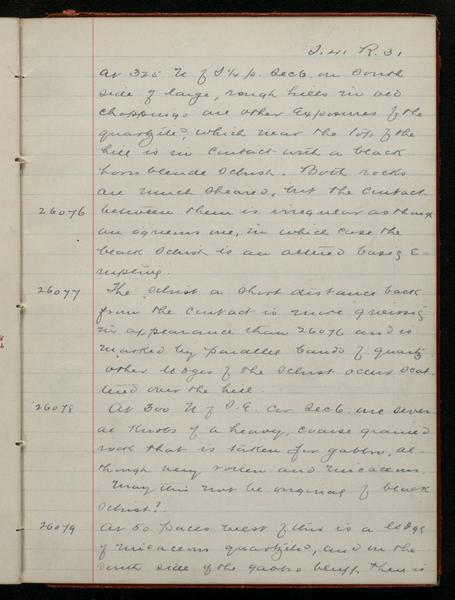 T. 41 R. 31
At 325 N of S 1/4 p. Sec 6, on South
side of large, rough hills in old
choppings are other exposures of the
quartzite, which near the top of the
hill is in contact with a black
hornblende schist. Both rocks
are much sheared, but the contact
26076 between them is irregular as though
an igneous one, in which case the
black Schist is an altered basic E-
ruptive.
26077 The Schist a short distance back
from the contact is more gneissic
in appearance than 26076 and is
marked by parallel bands of quartz
other ledges of the Schist occur Scat-
tered over the hill.
26078 At 300 N of S.E. Cor Sec 6. are sever-
al Knobs of a heavy, coarse grained
rock that is taken for gabbro, al-
though very rotten and micaceous.
May this not be original of black
Schist?
26079 At 50 paces west of this is a ledge
of micaceous quartzite, and on the
south side of the gabbro bluff, there is